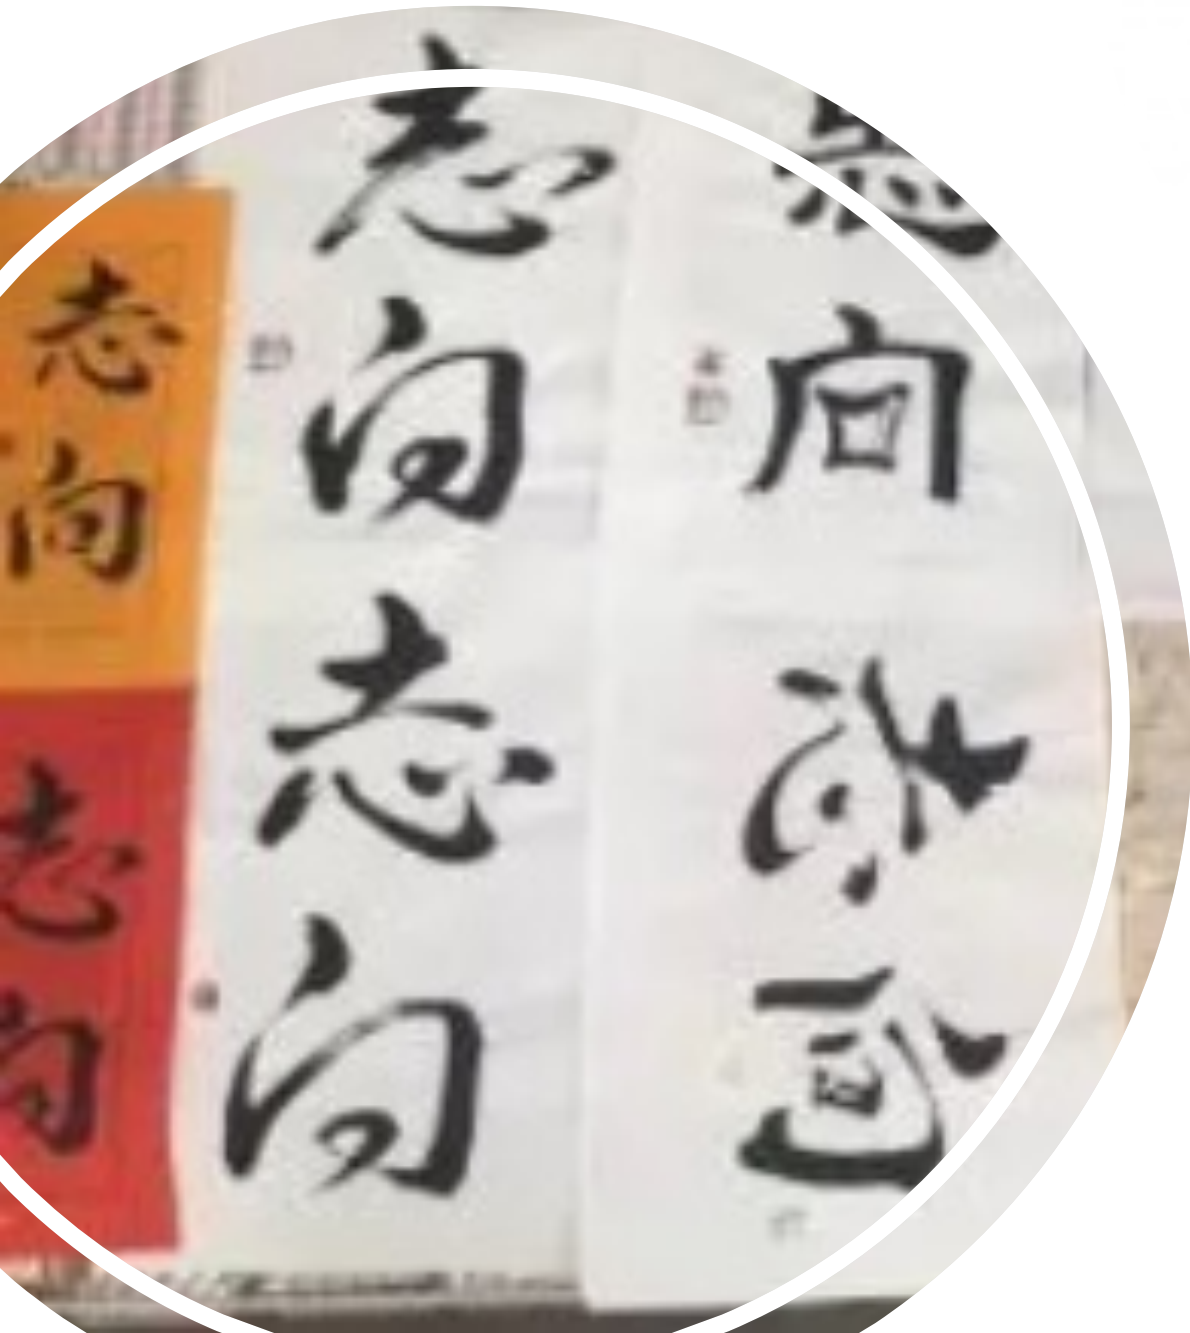 志向
志向
志向
志向
志向
志向